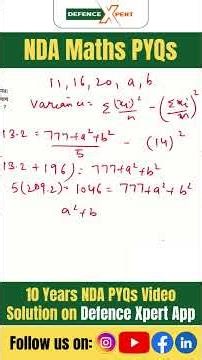 DEFENCE XPERT
NDA Maths PYQs
11, 16, 20, a, b
Variance = Σ(xi)²/n - (Σxi/n)²
13.2 = 777+a²+b²/5 - (14)²
13.2 + 196) = 777+a²+b²
5(209.2) = 1046 = 777+a²+b²
a²+b
10 Years NDA PYQs Video
Solution on Defence Xpert App
Follow us on: